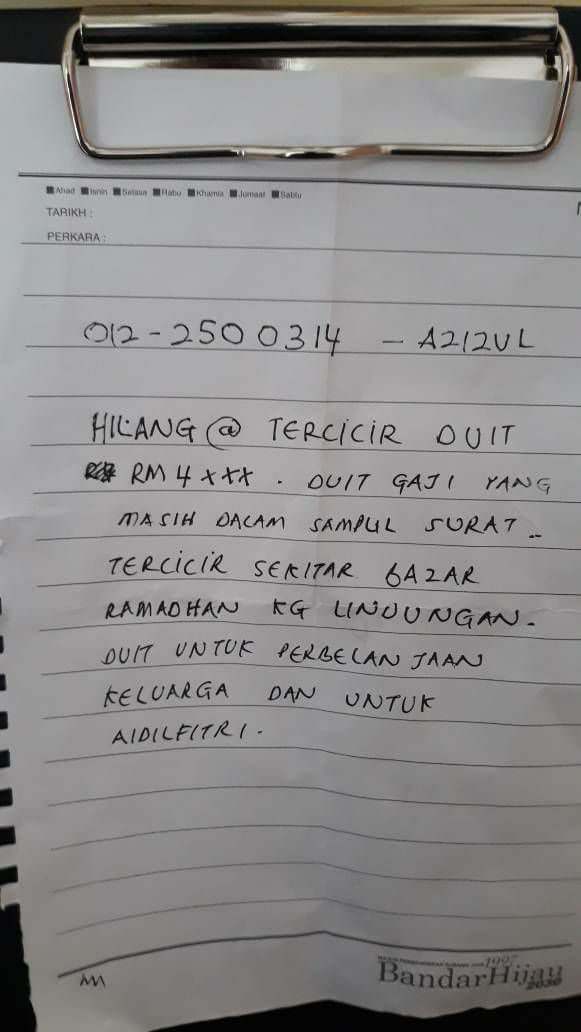 Ahad Isnin Selasa Rabu Khamis Jumaat Sabtu
TARIKH :
PERKARA :
012-2500314 - A212UL
HILANG @ TERCICIR DUIT
RM 4 xxx . DUIT GAJI YANG
MASIH DALAM SAMPUL SURAT ..
TERCICIR SEKITAR BAZAR
RAMADHAN KG LINDUNGAN.
DUIT UNTUK PERBELANJAAN
KELUARGA DAN UNTUK
AIDILFITRI.
1997
BandarHijau
2030